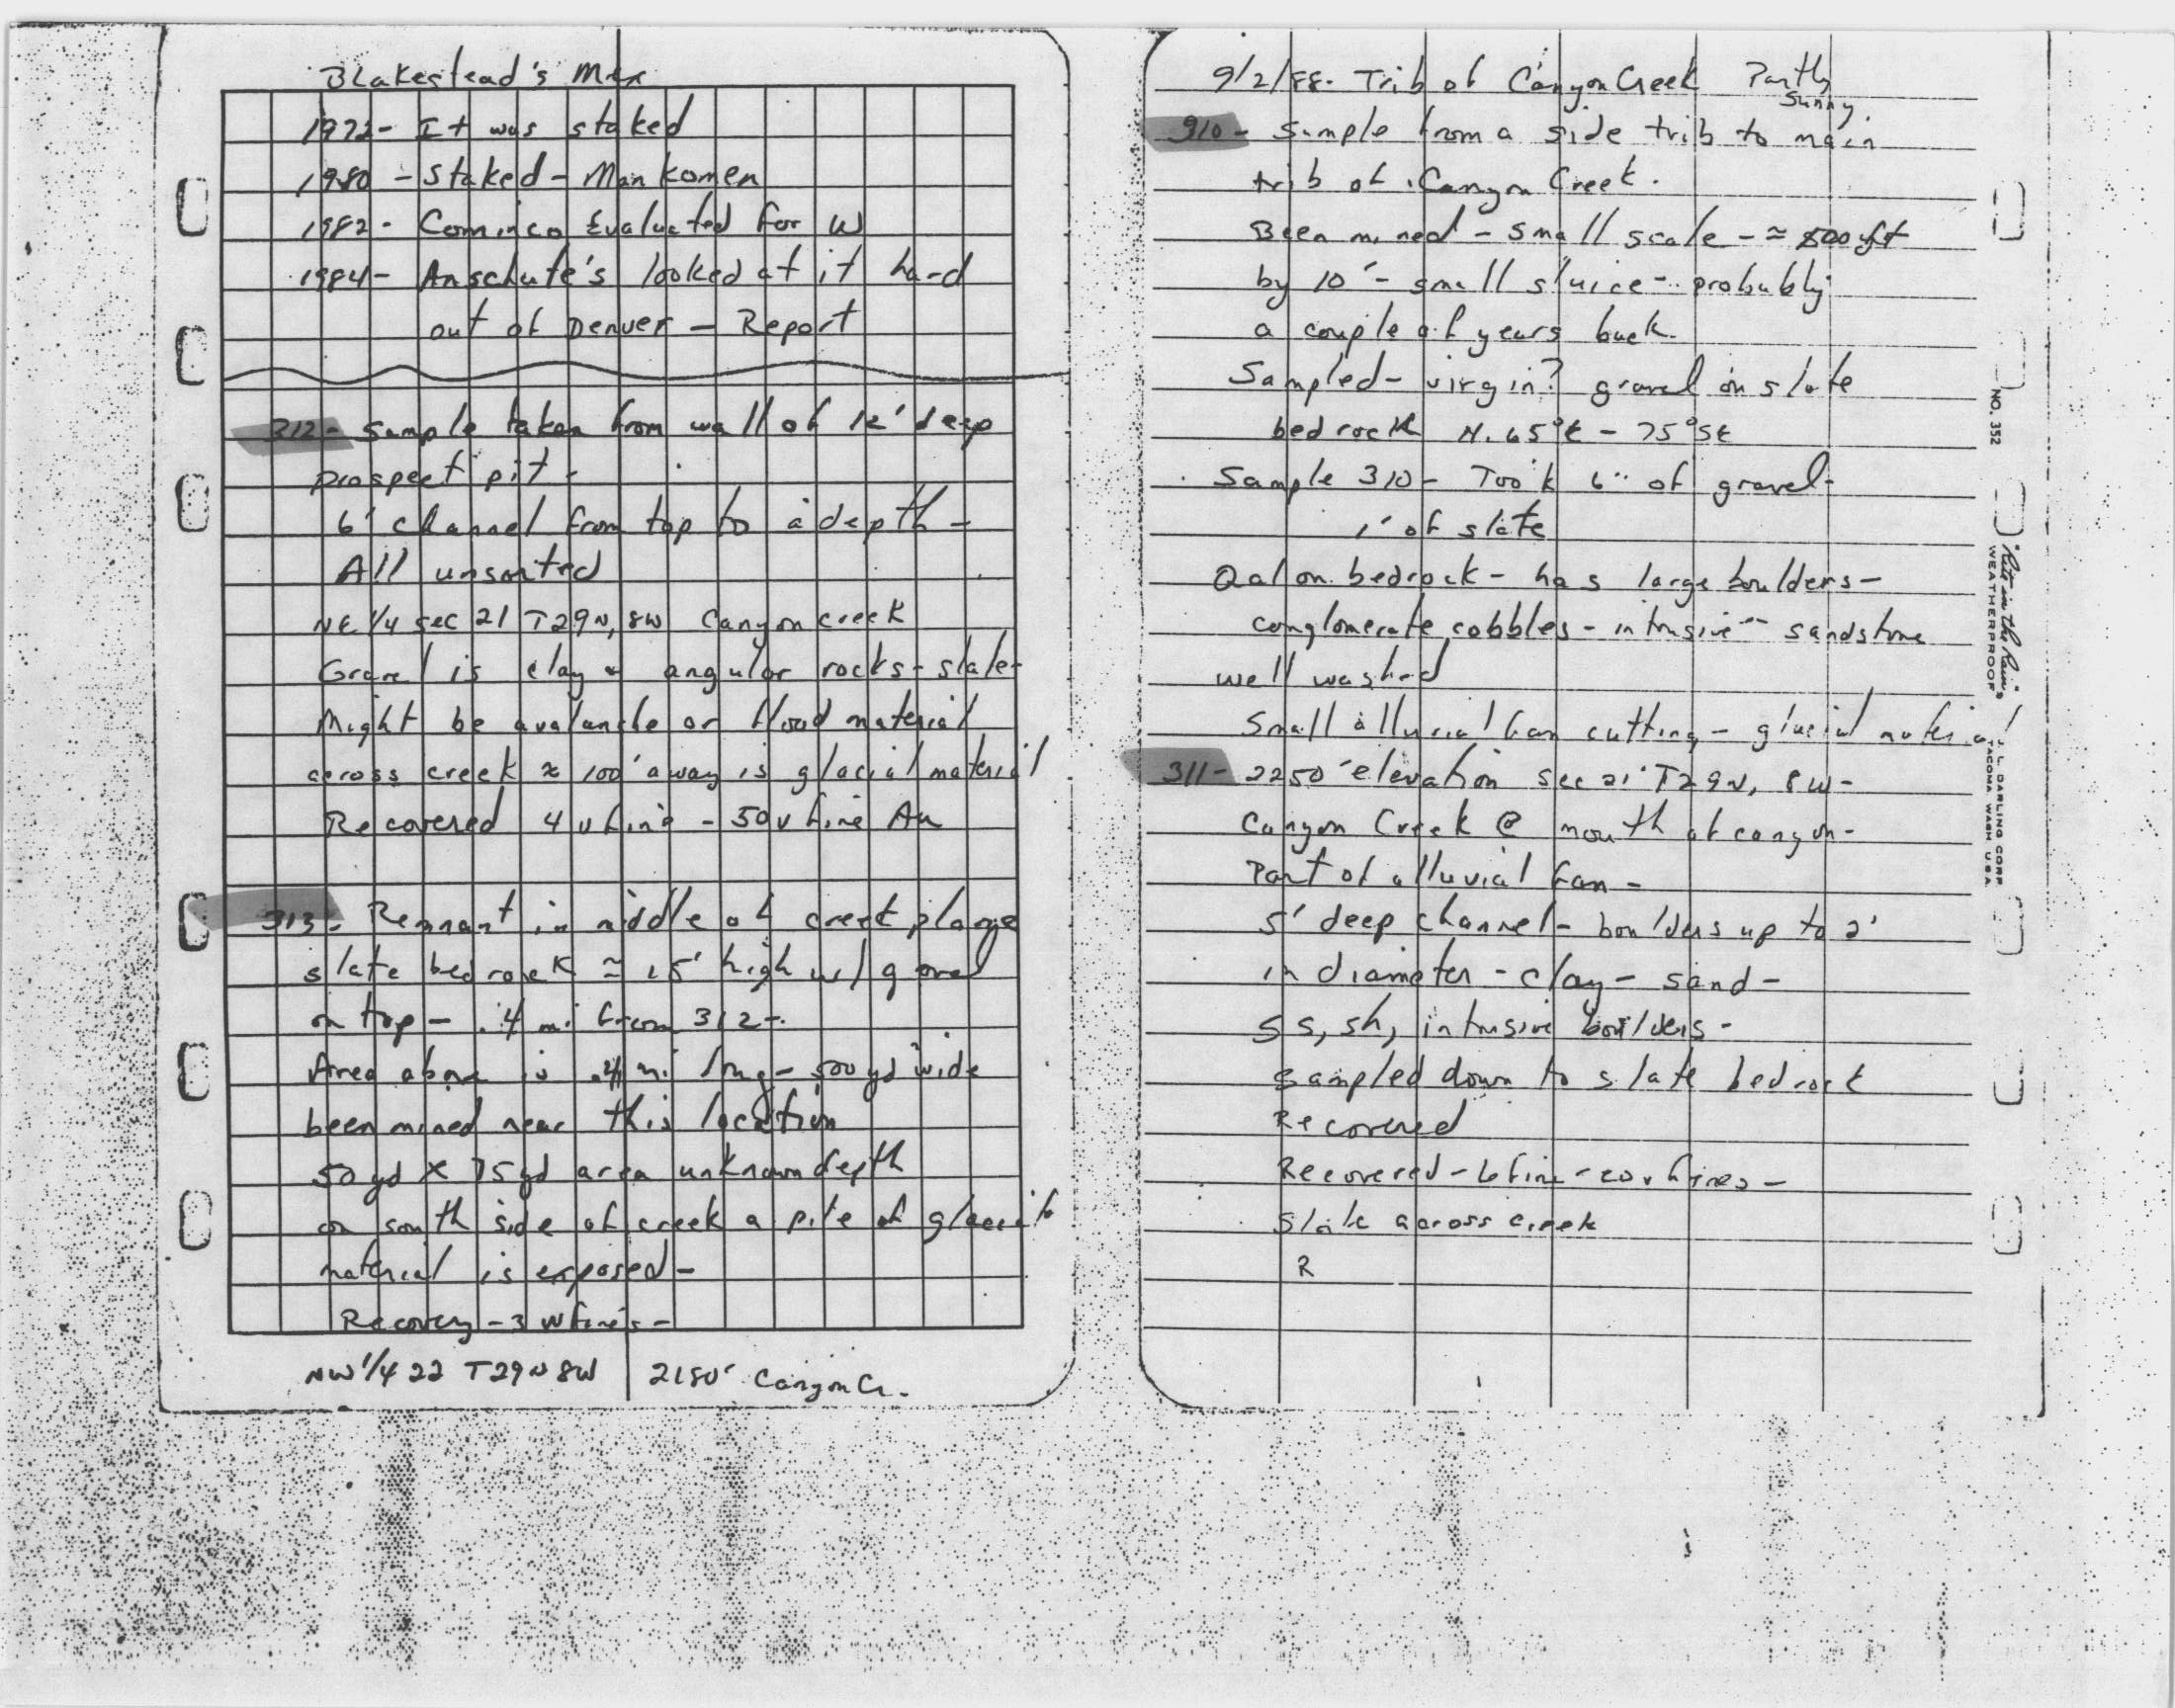 Blakestead's
1972- It was staked
1980 - Staked - Mankomen
1982 - Cominco Evaluated for W
1984 - Anschute's looked at it hard
out of Denver - Report
312- Sample taken from wall of 12' deep
prospect pit -
6' channel from top to a depth -
All unsorted
NE 1/4 sec 21 T29N, 8W Canyon creek
Gravel is clay & angular rocks - slate-
Might be avalanche or flood material
across creek ≈ 100' away is glacial material
Recovered 4 v fine - 50 v fine Au
313- Remnant in middle of creek
slate bedrock ≈ 15' high w/ gravel
on top - .4 mi from 312-
Area above is .4 mi long - 500 yd wide
been mined near this location
50 yd x 75 yd area unknown depth
on south side of creek a pile of
material is exposed -
Recovery - 3
NW 1/4 22 T29N 8W 2180' Canyon Cr.
9/2/88- Trib of Canyon Creek Partly
Sunny
910- Sample from a side trib to main
trib of Canyon Creek.
Been mined - small scale - ≈
by 10' - small sluice - probably
a couple of years back.
Sampled - virgin? gravel on slate
bedrock N. 65°E - 75°SE
Sample 310 - Took 6" of gravel-
1' of slate
Qal on bedrock - has large boulders -
conglomerate cobbles - intrusive - sandstone
well washed
Small alluvial fan cutting - glacial material
311- 2250' elevation sec 21 T29N, 8W -
Canyon Creek @ mouth of canyon -
Part of alluvial fan -
5' deep channel - boulders up to 2'
in diameter - clay - sand -
SS, sh, intrusive boulders -
Sampled down to slate bedrock
Recovered
Recovered - 6 fine - 20 v fines -
Slate across creek
R
NO. 352
"Rite in the Rain"
WEATHERPROOF
J. L. DARLING CORP
TACOMA WASH U.S.A.